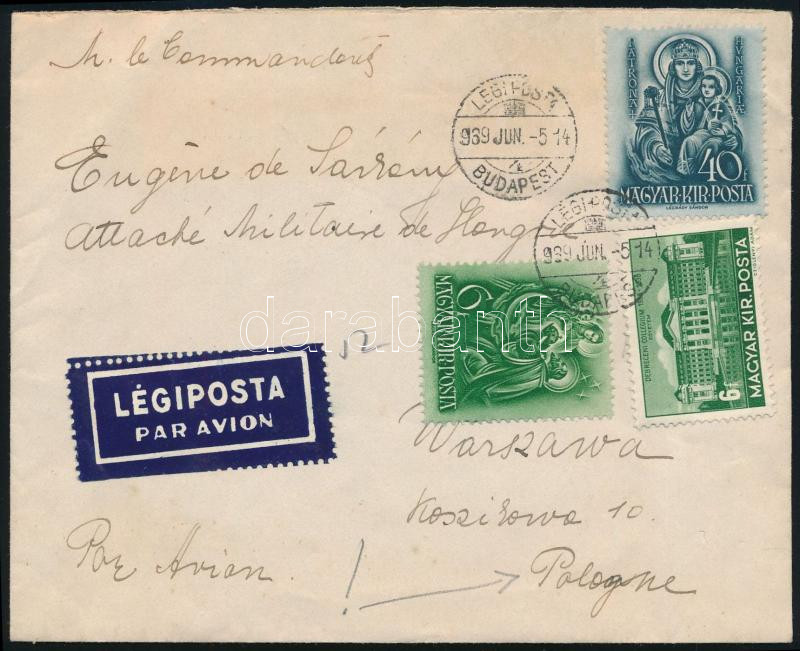 M. le Commandant
Eugène de Sárkány
Attaché Militaire de Hongrie
Warszawa
Koszikowa 10.
Pologne
Par Avion.
!
LÉGIPOSTA
PAR AVION
LÉGIPOSTA
939 JUN. -5 14
4
BUDAPEST
LÉGIPOSTA
939 JUN. -5 14
4
BUDAPEST
PATRONA
HUNGARIAE
40f
MAGYAR·KIR·POSTA
LÉGRÁDY SÁNDOR
6
MAGYAR·KIR·POSTA
DEBRECENI COLLEGIUM
MAGYAR KIR. POSTA
6f
darabanth